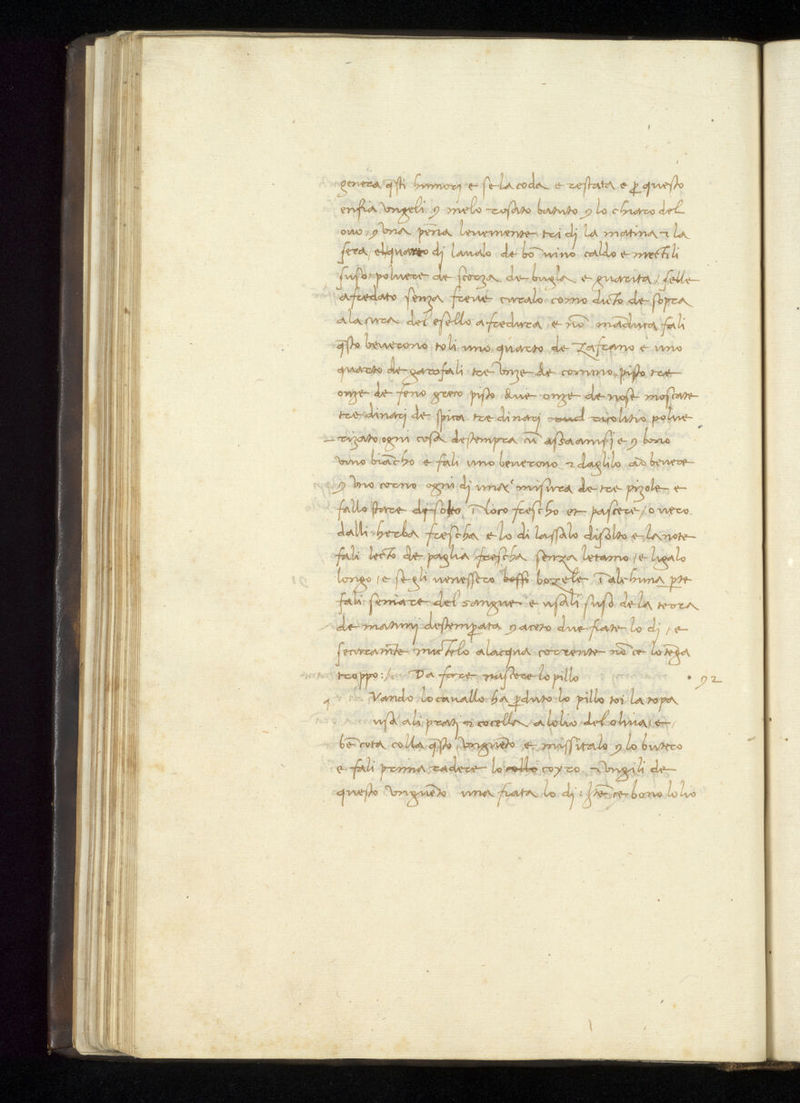 genera q̃sti humori e se la coda e restata e ꝑ questo
enfia ungeli ꝯ melo rosato batuto ꝯ lo chiaro del
ovo, ꝯ una pẽna levemente tri dj la matina ⁊ la
sera, el quarto dj lavalo de bõ vino caldo e metili
suso polvere de scorza de bugla e guarita / selle
afredato senza freve curalo como dicto de sopra
a la cura del esello afredura, e nõ
q̃sto beverono toli uno quarto de Zafrano e uno
quarto de garofali tre unze de comino pisto tre
onze de feno greco pisto due onze de nose moscate
tre dinari de spica tre dinari polve
rizato ogni cosa destempra e ꝯ bono
vino biãcho e fali uno beverono ⁊ daglilo ad bevere
ꝯ uno corno ogni dj una misura de tre pizole e
fallo stare loco frescho et pascere / o vero
dalli herba frescha e lo di lassalo disolto e la note
fali lecto de paglia frescha senza letamo / e ligalo
longo / e se gli venessero boffi ĩ alchuna ꝑte
fali seniare del sangue e usali suso de la terra
de destemꝑata ꝯ aceto due fiate lo dj / e
securamẽte metelo a lacqua corrente nõ ce lo tẽga
troppo :/ Da fare nascere lo pillo • 92
Uando lo cavallo ha ꝑduto lo pillo toi la topa
usa ali prati ⁊ cocella a lolio del oliva / e /
bẽ cota colla q̃sto unguẽto e missitalo ꝯ lo butero
e fali prima radere lo collo corro ⁊ ungili de
questo unguẽto una fiata lo dj : bono lolio